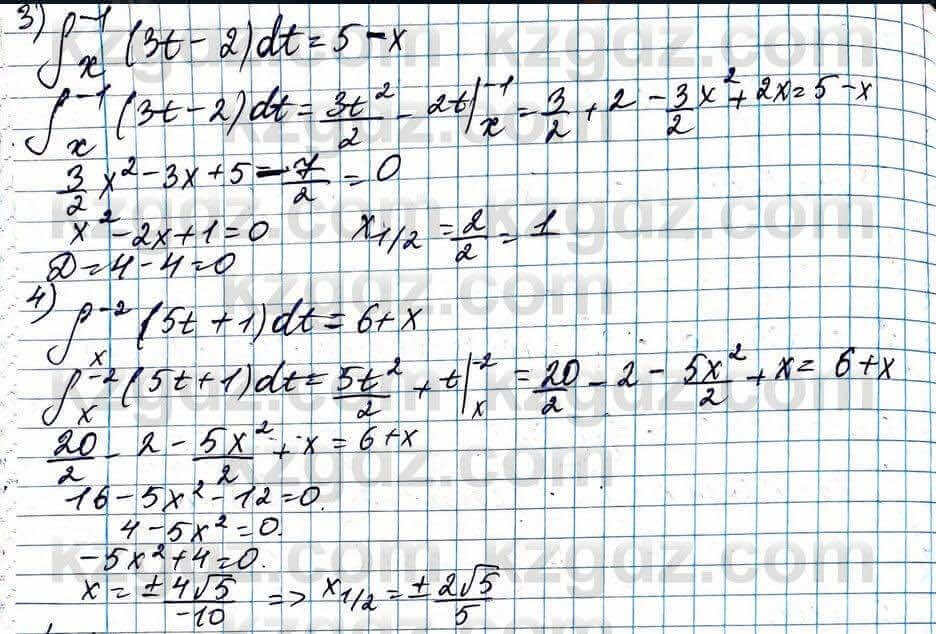 3) ∫_x^{-1} (3t - 2)dt = 5 - x
∫_x^{-1} (3t - 2)dt = 3t²/2 - 2t|_x^{-1} = 3/2 + 2 - 3/2 x² + 2x = 5 - x
3/2 x² - 3x + 5 - 7/2 = 0
x² - 2x + 1 = 0 x_{1/2} = 2/2 = 1
D = 4 - 4 = 0
4) ∫_x^{-2} (5t + 1)dt = 6 + x
∫_x^{-2} (5t + 1)dt = 5t²/2 + t|_x^{-2} = 20/2 - 2 - 5x²/2 + x = 6 + x
20/2 - 2 - 5x²/2 + x = 6 + x
16 - 5x² - 12 = 0.
4 - 5x² = 0.
-5x² + 4 = 0.
x = ± 4√5/-10 => x_{1/2} = ± 2√5/5
kzgdz.com